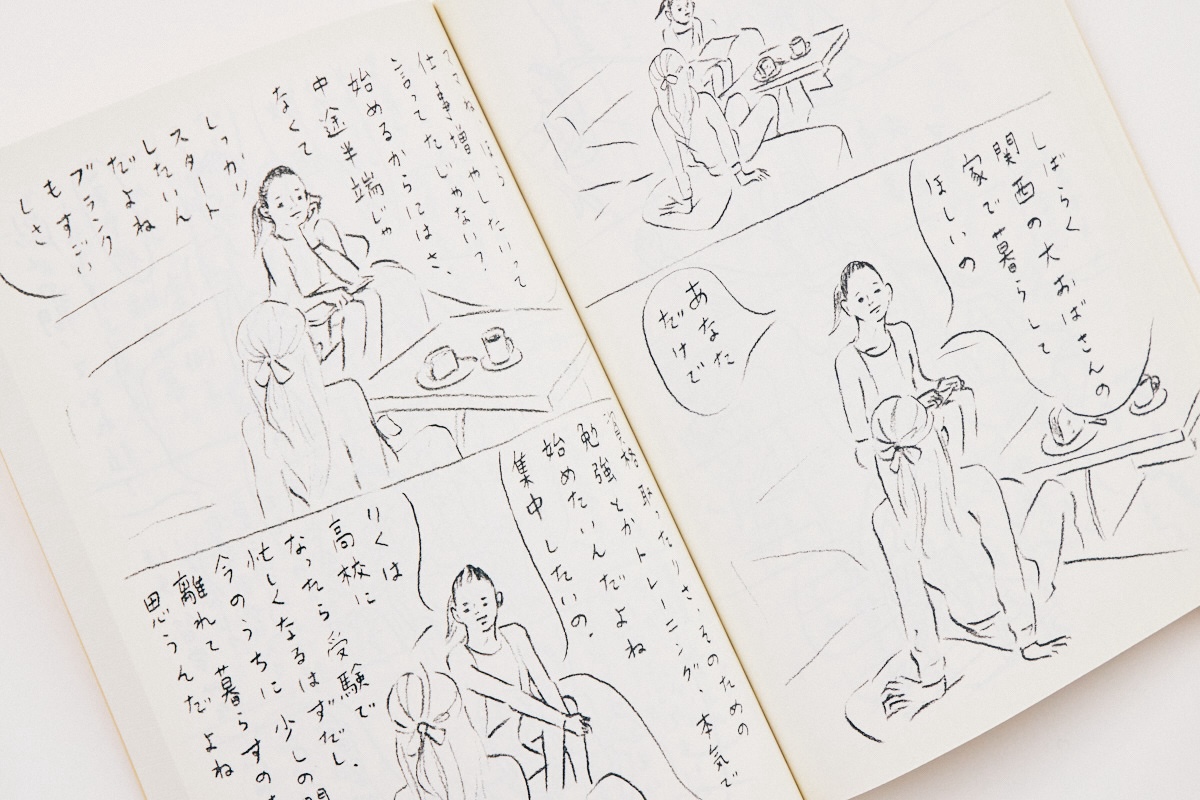 しばらく
関西の大おばさんの
家で暮らして
ほしいの
あなた
だけで
ママね、ほら
仕事増やしたいって
言ってたじゃない？
始めるからにはさ、
中途半端じゃ
なくて
しっかり
スタート
したいん
だよね
ブランク
もすごい
しさ
資格取ったりさ、そのための
勉強とかトレーニング、本気で
始めたいんだよね
集中したいの。
りくは
高校に
なったら受験で
忙しくなるはずだし、
今のうちに少しの
離れて暮らすの
思うんだよね